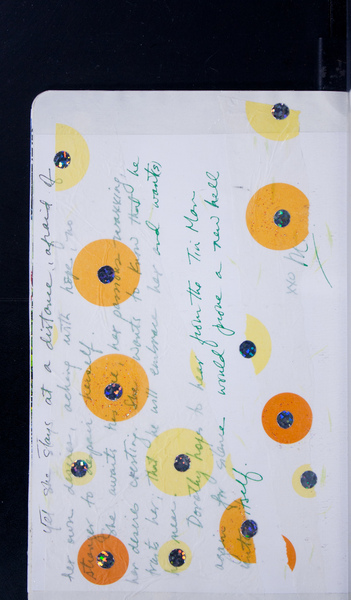 Yet she stays at a distance, afraid of
her own desire, aching with hope, no
stronger to again herself.
She awaits her, her passions
her desires overtly. She wants to know that he
wants her, that he will embrace her and wants
her near.
Dorothy hopes to hear from the Tin Man
again for silence would prove a new hell
unto itself.
xxo M